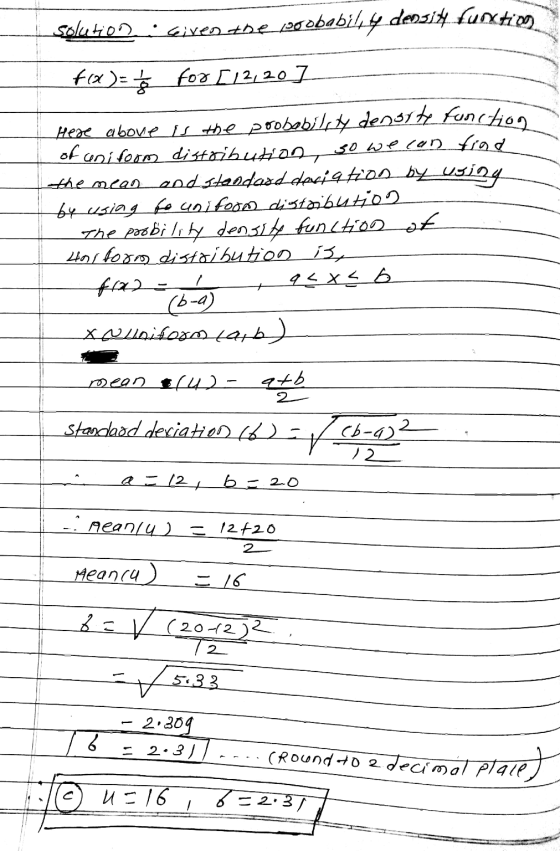 Solution : Given the probability density function
f(x) = 1/8 for [12,20]
Here above is the probability density function
of uniform distribution, so we can find
the mean and standard daviation by using
by using fo uniform distribution
The probility density function of
Uniform distribution is,
f(x) = 1/(b-a) , a ≤ x ≤ b
x ~ Uniform (a,b)
mean (u) - a+b/2
Standard deviation (6) = √(b-a)²/12
∴ a = 12, b = 20
∴ Mean(u) = 12+20/2
Mean(u) = 16
6 = √(20-12)²/12
= √5.33
- 2.309
6 = 2.31 .... (Round to 2 decimal place)
∴ (c) u = 16 , 6 = 2.31